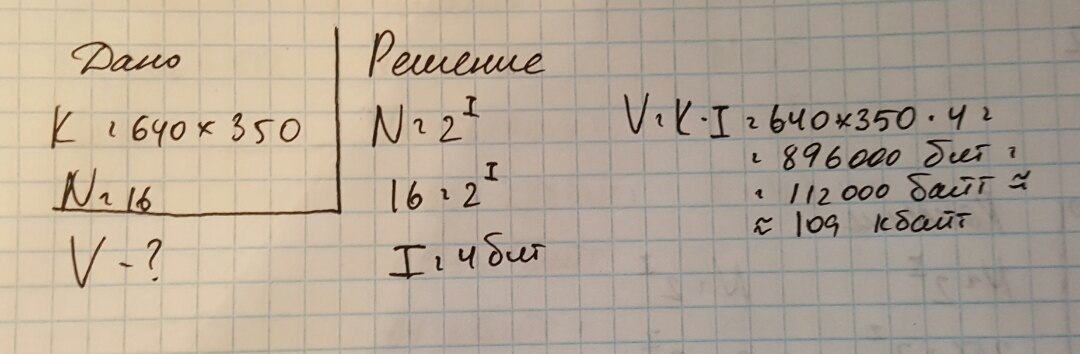 Дано
K = 640 × 350
N = 16
V - ?
Решение
N = 2^I
16 = 2^I
I = 4 бит
V = K · I = 640 × 350 · 4 =
= 896000 бит =
= 112000 байт ≈
≈ 109 кбайт